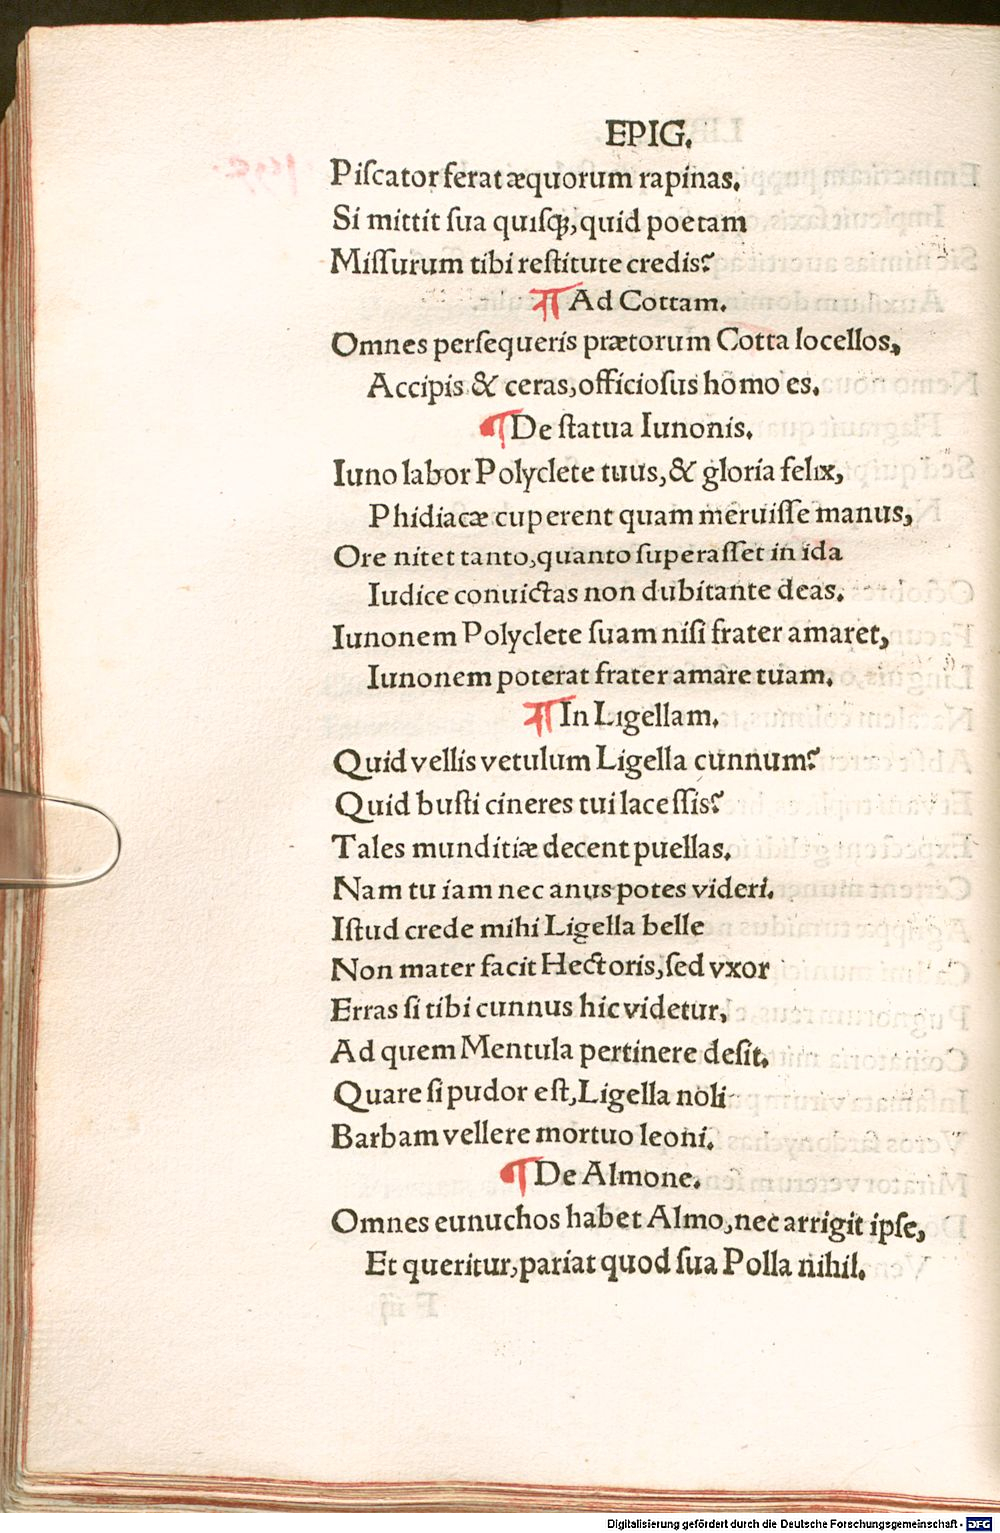 EPIG.
Piſcator ferat æquorum rapinas.
Si mittit ſua quiſq;, quid poetam
Miſſurum tibi reſtitute credis?
¶ Ad Cottam.
Omnes perſequeris prætorum Cotta locellos,
Accipis & ceras, officioſus homo es.
¶ De ſtatua Iunonis.
Iuno labor Polyclete tuus, & gloria felix,
Phidiacæ cuperent quam meruiſſe manus,
Ore nitet tanto, quanto ſuperaſſet in ida
Iudice conuictas non dubitante deas.
Iunonem Polyclete ſuam niſi frater amaret,
Iunonem poterat frater amare tuam.
¶ In Ligellam.
Quid vellis vetulum Ligella cunnum?
Quid buſti cineres tui laceſſis?
Tales munditiæ decent puellas.
Nam tu iam nec anus potes videri.
Iſtud crede mihi Ligella belle
Non mater facit Hectoris, ſed vxor
Erras ſi tibi cunnus hic videtur,
Ad quem Mentula pertinere deſit.
Quare ſi pudor eſt, Ligella noli
Barbam vellere mortuo leoni.
¶ De Almone.
Omnes eunuchos habet Almo, nec arrigit ipſe,
Et queritur, pariat quod ſua Polla nihil.
Digitalisierung gefördert durch die Deutsche Forschungsgemeinschaft - DFG